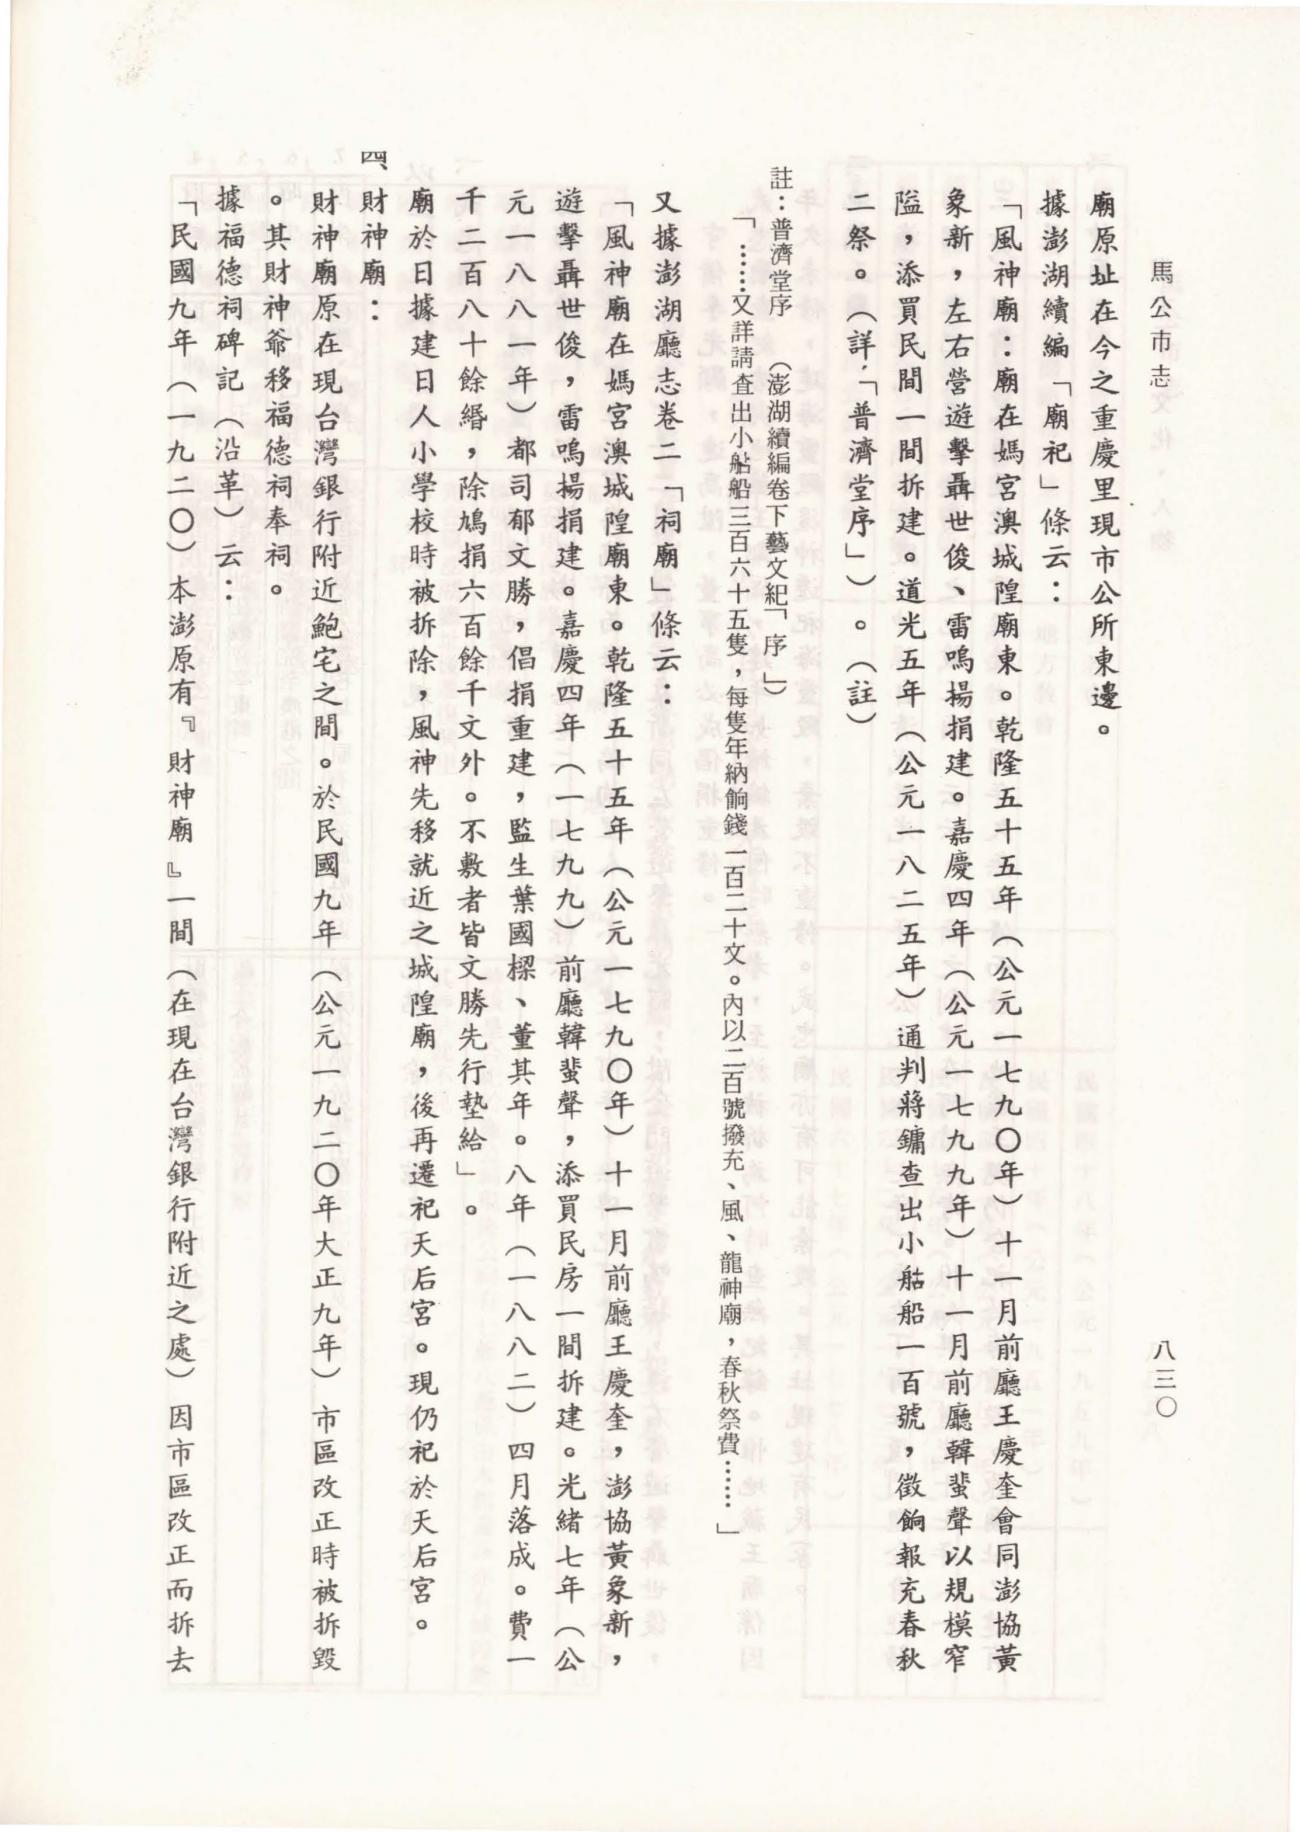 馬公市志
八三〇
廟原址在今之重慶里現市公所東邊。
據澎湖續編「廟祀」條云：
「風神廟：廟在媽宮澳城隍廟東。乾隆五十五年（公元一七九〇年）十一月前廳王慶奎會同澎協黃
象新，左右營遊擊聶世俊、雷鳴揚捐建。嘉慶四年（公元一七九九年）十一月前廳韓蜚聲以規模窄
隘，添買民間一間拆建。道光五年（公元一八二五年）通判蔣鏞查出小䑩船一百號，徵餉報充春秋
二祭。（詳「普濟堂序」）。（註）
註：普濟堂序　（澎湖續編卷下藝文紀「序」）
「……又詳請查出小船三百六十五隻，每隻年納餉錢一百二十文。內以二百號撥充、風、龍神廟，春秋祭費……」
又據澎湖廳志卷二「祠廟」條云：
「風神廟在媽宮澳城隍廟東。乾隆五十五年（公元一七九〇年）十一月前廳王慶奎，澎協黃象新，
遊擊聶世俊，雷鳴揚捐建。嘉慶四年（一七九九）前廳韓蜚聲，添買民房一間拆建。光緒七年（公
元一八八一年）都司郁文勝，倡捐重建，監生葉國樑、董其年。八年（一八八二）四月落成。費一
千二百八十餘緡，除鳩捐六百餘千文外。不敷者皆文勝先行墊給」。
廟於日據建日人小學校時被拆除，風神先移就近之城隍廟，後再遷祀天后宮。現仍祀於天后宮。
四、財神廟：
財神廟原在現台灣銀行附近鮑宅之間。於民國九年（公元一九二〇年大正九年）市區改正時被拆毀
。其財神爺移福德祠奉祠。
據福德祠碑記（沿革）云：
「民國九年（一九二〇）本澎原有『財神廟』一間（在現在台灣銀行附近之處）因市區改正而拆去